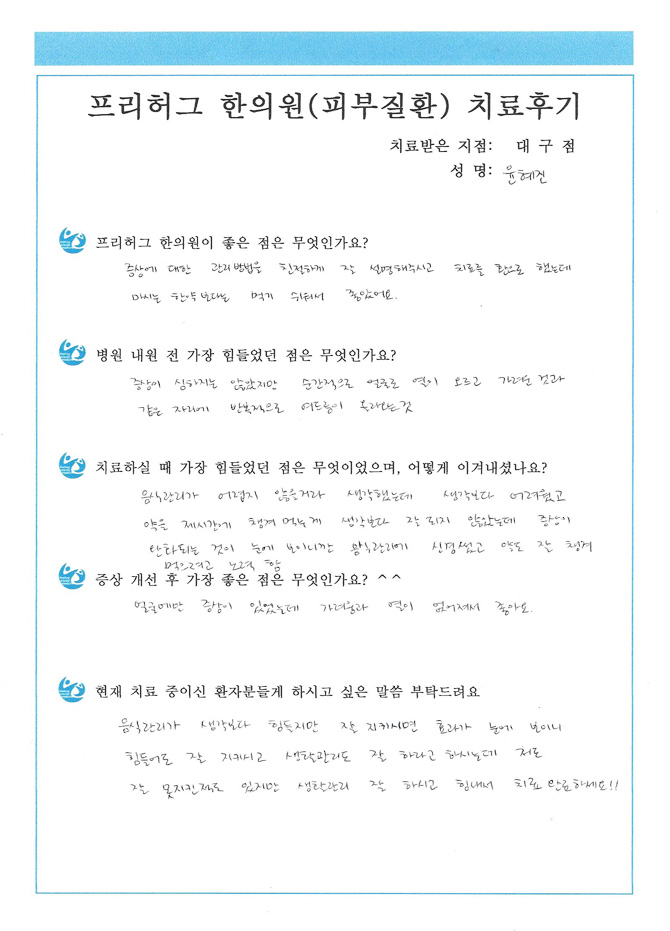 프리허그 한의원(피부질환) 치료후기
치료받은 지점: 대 구 점
성 명: 윤혜진
프리허그 한의원이 좋은 점은 무엇인가요?
증상에 대한 관리방법을 친절하게 잘 설명해주시고 치료를 환으로 했는데
마시는 한약보다는 먹기 쉬워서 좋았어요.
병원 내원 전 가장 힘들었던 점은 무엇인가요?
증상이 심하지는 않았지만 순간적으로 얼굴로 열이 오르고 가려운 것과
같은 자리에 반복적으로 여드름이 올라오는것
치료하실 때 가장 힘들었던 점은 무엇이었으며, 어떻게 이겨내셨나요?
음식관리가 어렵지 않을거라 생각했는데 생각보다 어려웠고
약을 제시간에 챙겨먹는게 생각보다 잘 되지 않았는데 증상이
완화되는 것이 눈에 보이니깐 음식관리에 신경썼고 약도 잘 챙겨
먹으려고 노력 함
증상 개선 후 가장 좋은 점은 무엇인가요? ^^
얼굴에만 증상이 있었는데 가려움과 열이 없어져서 좋아요.
현재 치료 중이신 환자분들게 하시고 싶은 말씀 부탁드려요
음식관리가 생각보다 힘들지만 잘 지키시면 효과가 눈에 보이니
힘들어도 잘 지키시고 생활관리도 잘 하라고 하시는데 저도
잘 못지킨적도 있지만 생활관리 잘 하시고 힘내서 치료 완료하세요!!